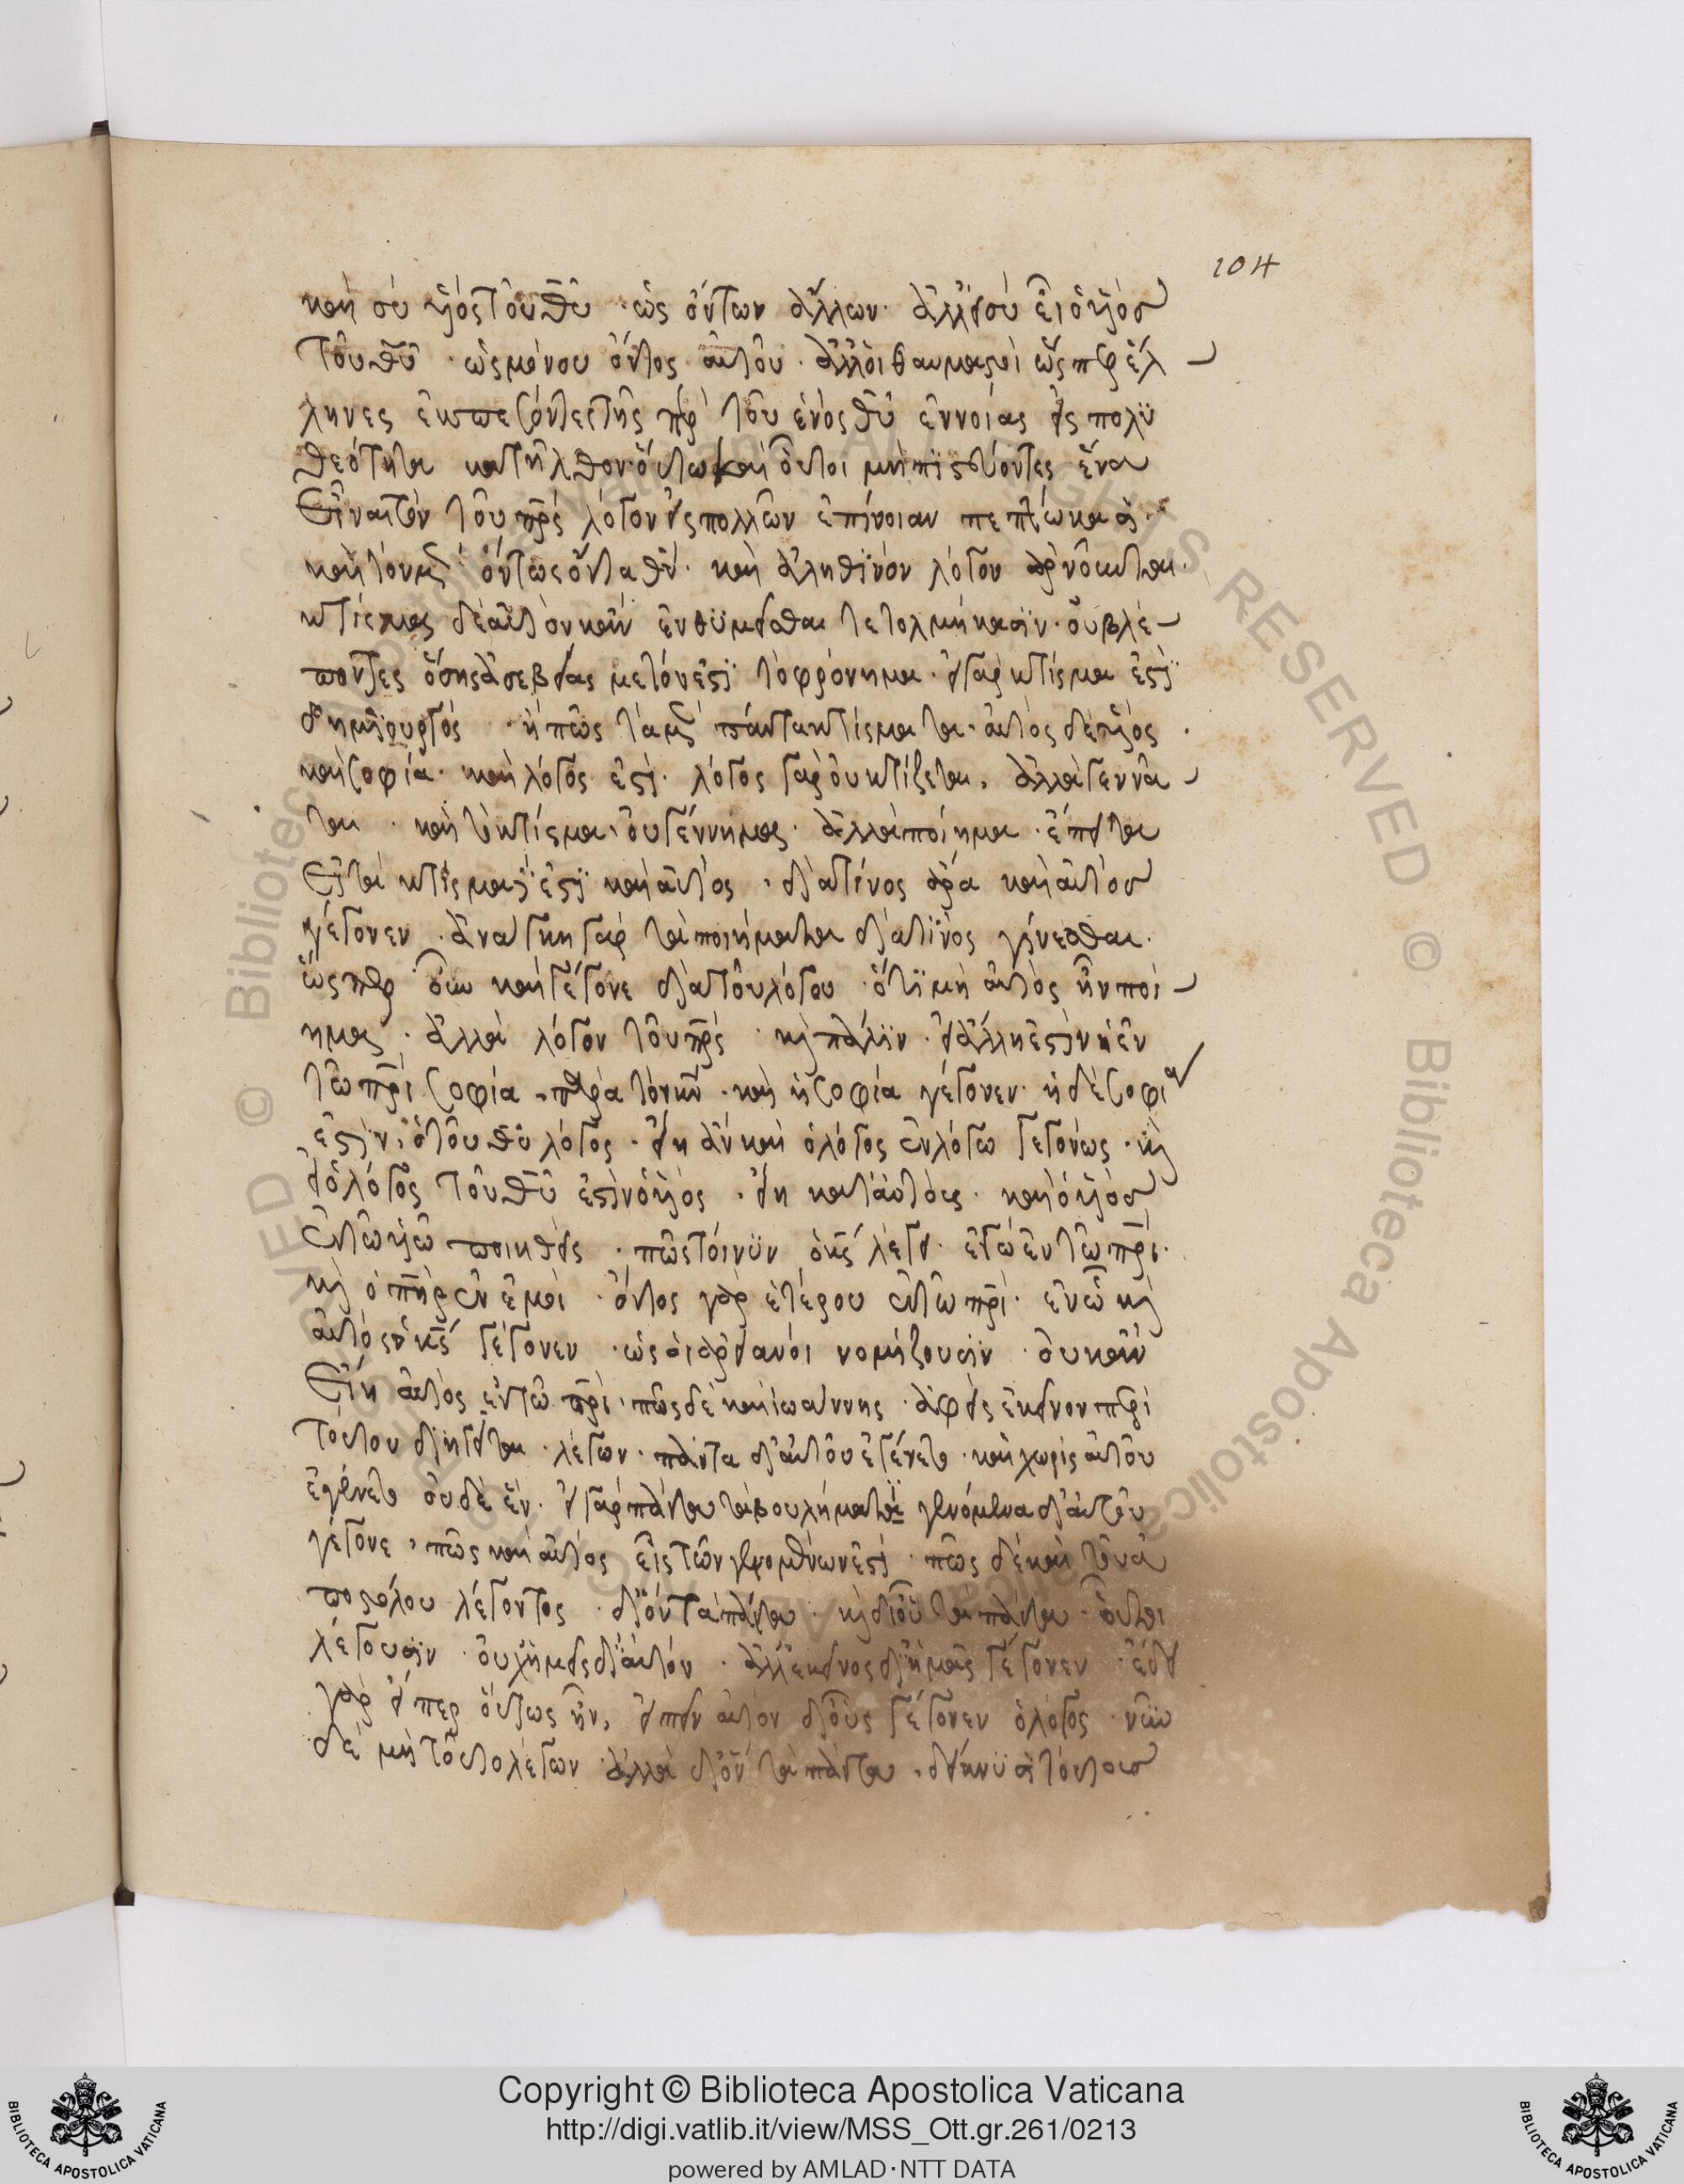 104
καὶ σὺ ὑιὸς τοῦ θῦ · ὡς ὄντων ἄλλων · ἀλλὰ σὺ εἶ ὁ ὑιὸσ
τοῦ θῦ · ὡς μόνου ὄντος αὐτοῦ · ἀλλ' οἱ θαυμαστοὶ ὥσπερ ἕλ
ληνες ἐκπεσόντες τῆς περὶ τοῦ ἑνὸς θῦ ἐννοίας εἰς πολϋ
θεότητα κατῆλθον οὕτω καὶ οὗτοι μὴ πϊστεύοντες ἕνα
εἶναι τὸν τοῦ πρς λόγον εἰς πολλῶν ἐπίνοιαν πεπτώκασι·
καὶ τὸν μὲν ὄντως ὄντα θν · καὶ ἀληθϊνὸν λόγον ἀρνοῦνται·
κτίσμα δὲ αὐτὸν κἂν ἐνθϋμεῖσθαι τετολμήκασϊν · οὐ βλέ
ποντες ὅσης ἀσεβείας μεστόν ἐστϊ τὸ φρόνημα · εἰ γὰρ κτίσμα ἐστϊ
δημϊουργός · ἢ πῶς τὰ μὲν πάντα κτίσματα · αὐτὸς δὲ ὑιὸς
καὶ σοφία · καὶ λόγος ἐστὶ · λόγος γὰρ οὐ κτίζεται, ἀλλὰ γεννᾶ
ται · καὶ τὸ κτίσμα, οὐ γέννημα · ἀλλὰ ποίημα · ἔπειτα
εἴτε κτίσμα ἐστϊ καὶ αὐτὸς · διὰ τίνος ἄρα καὶ αὐτὸσ
γέγονεν · ἀνάγκη γὰρ τὰ ποιήματα διά τϊνος γίνεσθαι·
ὥσπερ οὖν καὶ γέγονε διὰ τοῦ λόγου · ὅτϊ μὴ αὐτὸς ἦν ποί
ημα · ἀλλὰ λόγον τοῦ πρς · κὶ πάλϊν · εἰ ἄλλη ἐστὶν ἡ ἐν
τῶ πρὶ σοφία παρὰ τὸν κν · καὶ ἡ σοφία γέγονεν · ἡ δὲ σοφία
ἐστϊν, ὁ τοῦ θῦ λόγος · εἴη ἂν καὶ ὁ λόγος ἐν λόγω γεγονὼς · κὶ
εἰ ὁ λόγος τοῦ θῦ ἐστὶν ὁ ὑιὸς · εἴη κατ' αὐτοὺς · καὶ ὁ ὑιὸσ
ἐν τῶ ὑιῶ ποιηθεὶς · πῶς τοίνϋν ὁ κς λέγει · ἐγὼ ἐν τῶ πρὶ·
κὶ ὁ πηρ ἐν ἐμοὶ · ὄντος γὰρ ἑτέρου ἐν τῶ πρὶ · ἐν ὧ κὶ
αὐτὸς ὁ κς γέγονεν · ὡς οἱ ἀρειανοὶ νομίζουσϊν · οὐκ ἂν
εἴη αὐτὸς ἐν τῶ πρὶ · πῶς δὲ καὶ ἰωάννης · ἀφεὶς ἐκεῖνον περὶ
τούτου διηγεῖται · λέγων · πάντα δι' αὐτοῦ ἐγένετο · καὶ χωρὶς αὐτοῦ
ἐγένετο οὐδὲ ἕν · εἰ γὰρ πάντα τὰ βουλήματϊ γϊνόμενα δι' αὐτοῦ
γέγονε · πῶς καὶ αὐτὸς εἷς τῶν γινομένων ἐστὶ · πῶς δὲ καὶ τοῦ ἀ
ποστόλου λέγοντος · δι' ὃν τὰ πάντα · κὶ δι' οὗ τὰ πάντα · οὗτοι
λέγουσϊν · οὐχ ἡμεῖς δι' αὐτὸν · ἀλλ' ἐκεῖνος δι' ἡμᾶς γέγονεν · ἔδει
γὰρ εἴπερ οὕτως ἦν, εἰπεῖν αὐτὸν δι' οὓς γέγονεν ὁ λόγος · νῦν
δὲ μὴ τοῦτο λέγων · ἀλλὰ δι' ὃν τὰ πάντα · δείκνϋσι τούτουσ
Copyright © Biblioteca Apostolica Vaticana
http://digi.vatlib.it/view/MSS_Ott.gr.261/0213
powered by AMLAD·NTT DATA